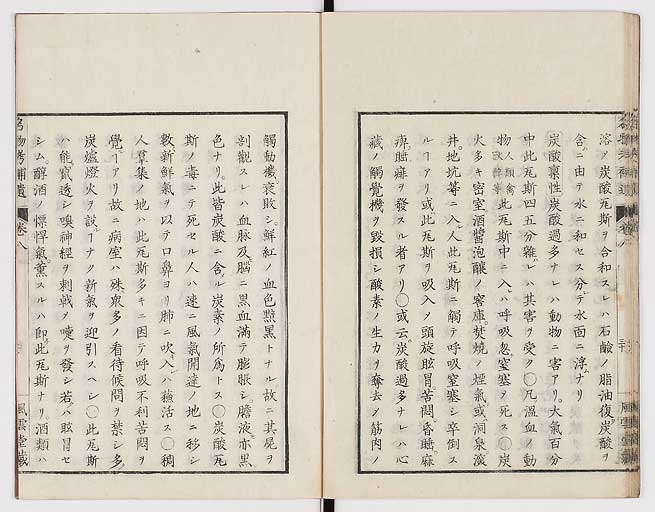 溶ノ炭酸瓦斯ヲ合和スレハ石鹸ノ脂油復炭酸ヲ
含ニ由テ水ニ和セス分テ水面ニ浮ナリ
炭酸稟性炭酸過多ナレハ動物ニ害アリ。大氣百分
中此瓦斯四五分雜レハ其害ヲ受ク〇凡温血ノ動
物人類禽獣ノ類此瓦斯中ニ入ハ呼吸忽窒塞ヲ死ス〇炭
火多キ密室酒醬泡釀ノ窖庫。焚燒ノ煙氣或洞泉淡
井。地坑等ニ入人此瓦斯ニ觸テ呼吸窒塞シ卒倒ス
ルアリ或此瓦斯ヲ吸入ノ頭旋眩冐。苦悶昏睡。麻
痺。ヲ發スル者アリ〇或云。炭酸過多ナレハ心
藏ノ觸覺機ヲ毀損シ酸素ノ生力ヲ奪去ノ筋肉ノ
觸動機衰敗シ。鮮紅ノ血色黯黒トナル故ニ其屍ヲ
剖觀スレハ血脉及腦ニ黒血滿テ膨脹シ。膽液亦黒
色ナリ。此皆炭酸ニ含ル炭素ノ所爲トス〇炭酸瓦
斯ノ毒ニテ死セル人ハ速ニ風氣開達ノ地ニ移シ
數新鮮氣ヲ以テ口鼻ヨリ肺ニ吹入ハ活ス〇稠
人羣集ノ地ハ此瓦斯多キニ因テ呼吸不利苦悶ヲ
覺アリ故ニ病室ハ殊衆多ノ看待候問ヲ禁シ多
炭爐燈火ヲ設ナク新氣ヲ迎引スヘシ〇此瓦斯
ハ能竄透シ嗅神經ヲ刺戟ノ嚏ヲ發シ若ハ眩冐セ
シム。醇酒ノ慓悍氣。薫スルハ即此瓦斯ナリ。酒類ハ
名物考補遺 卷八
風雲堂藏